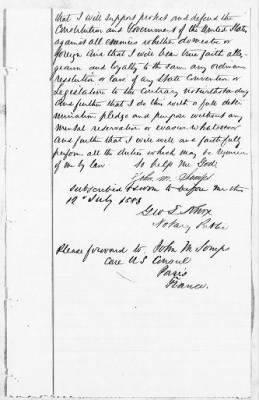 that I will support protect and defend the
Constitution and Government of the United States
against all enemies whether domestic or
foreign and that I will bear true faith alle-
giance and loyalty to the same any ordinance
resolution or law of any State Convention or
Legislature to the Contrary notwithstanding
And further that I do this with a full deter
mination pledge and purpose without any
mental reservation or evasion whatsoever
And further that I will well and faithfully
perform all the duties which may be required
of me by law. So help me God;
John M. Semps
Subscribed & sworn to before me this
19th July 1868
Geo E Knox
Notary Public
Please forward to John M Semps
Care U.S Consul
Paris
France